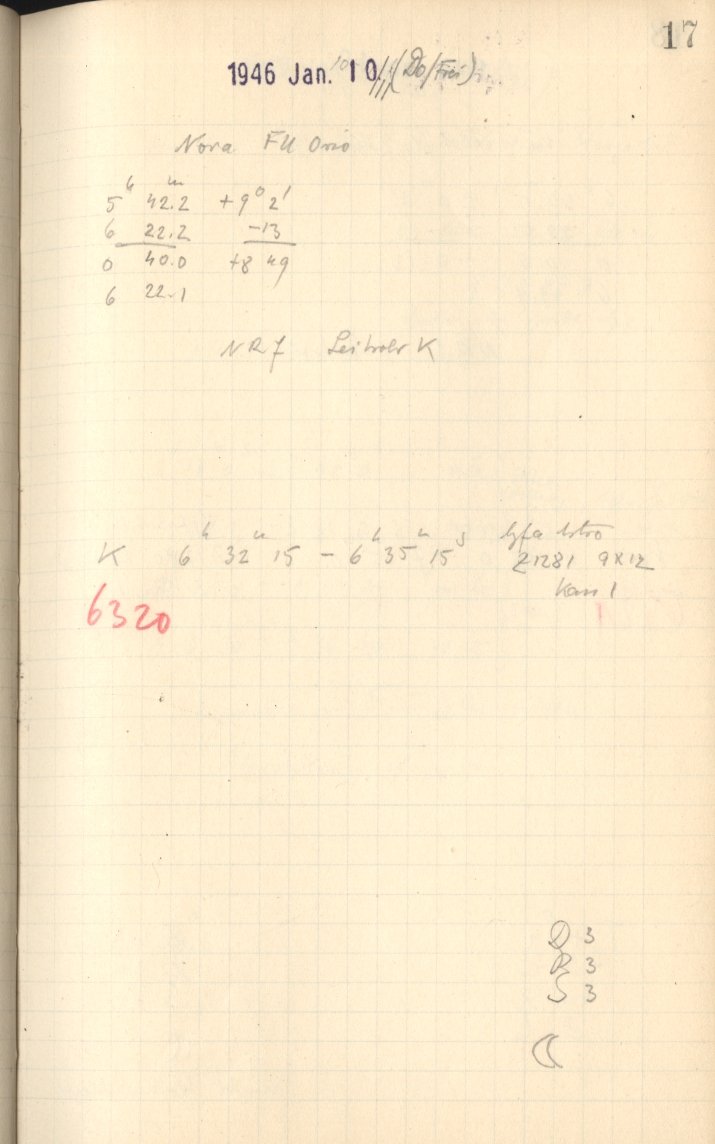 17
1946 Jan. 10 (Do/Frei)
Nova FU Orio
5h 42m.2 +9° 2'
6 22.2 -13
0 40.0 +8 49
6 22.1
NR 7 Leitrohr K
K 6h 32m 15 - 6h 35m 15s Agfa Astro
Z1281 9x12
Kass 1
6320
D 3
R 3
S 3